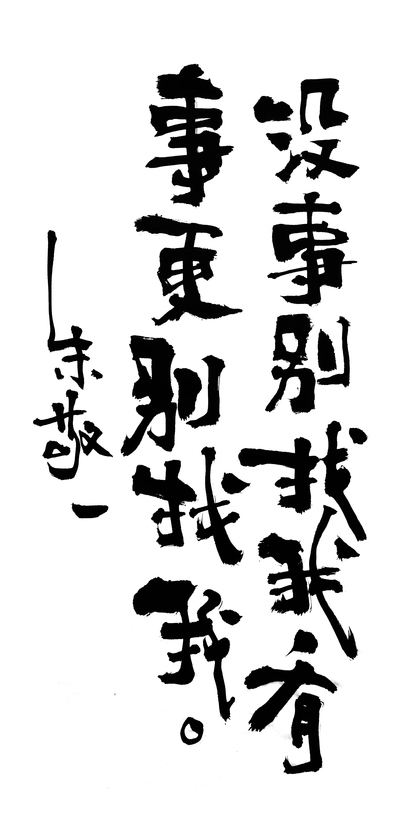 没事别找我有
事更别找我。
朱敬一